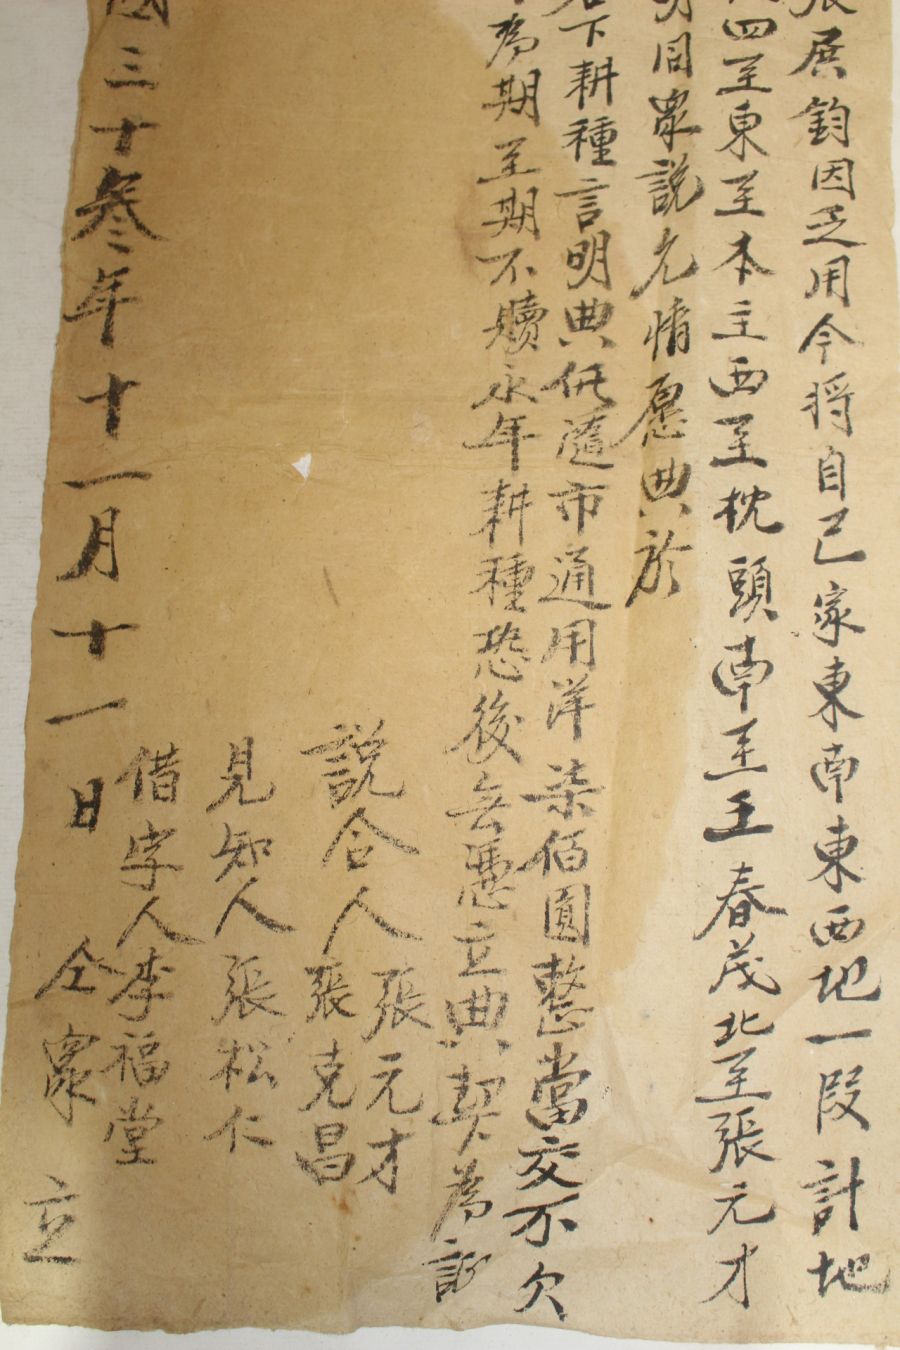 張展鈞因乏用今將自己家東南東西地一段計地
四至東至本主西至枕頭南至王春茂北至張元才
明同眾說允情愿典於
名下耕種言明典價隨市通用洋柒佰圓整當交不欠
為期至期不贖永年耕種恐後無憑立典契為証
說合人張元才
張克昌
見知人張松仁
借字人李福堂
國三十叁年十一月十一日 仝眾 立